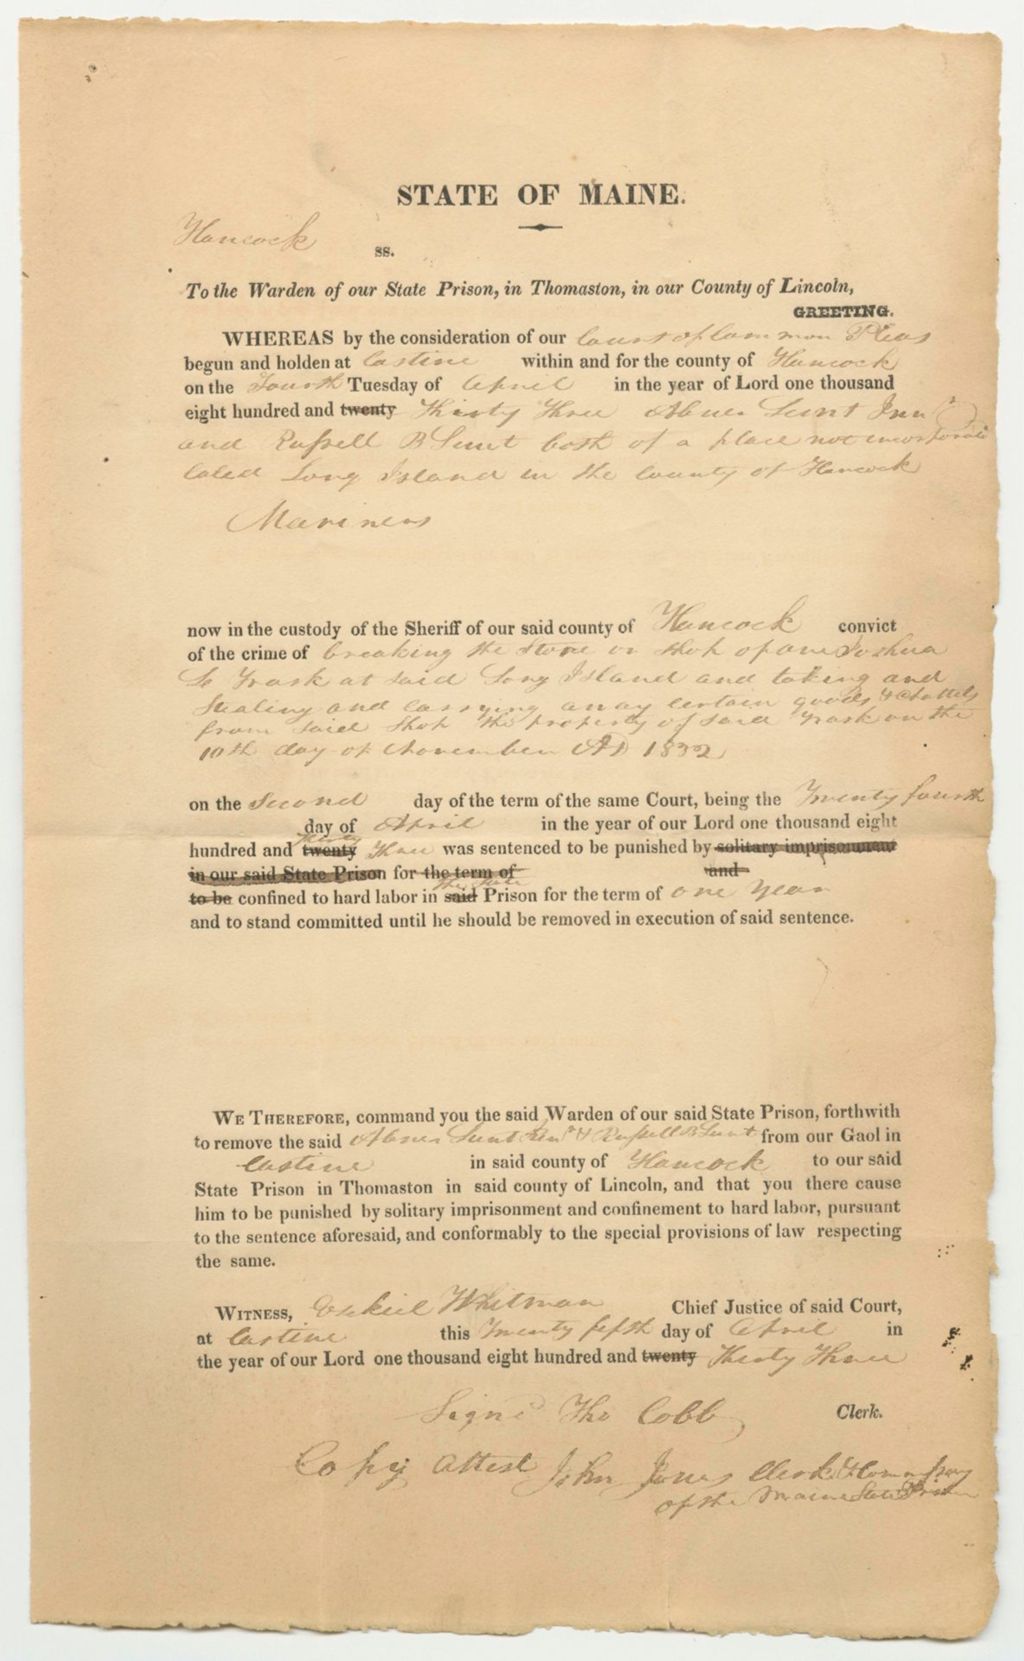 STATE OF MAINE.
Hancock ss.
To the Warden of our State Prison, in Thomaston, in our County of Lincoln,
GREETING.
WHEREAS by the consideration of our Court of Common Pleas
begun and holden at Castine within and for the county of Hancock
on the Fourth Tuesday of April in the year of Lord one thousand
eight hundred and twenty Thirty Three Abner Lunt
and Russell B Lunt both of a place not incorporated
called Long Island in the County of Hancock
Mariners
now in the custody of the Sheriff of our said county of Hancock convict
of the crime of breaking the Store or Shop of one Joshua
Trask at said Long Island and taking and
Stealing and carrying away certain goods & Chattels
from said Shop the property of said Trask on the
10th day of November AD 1832
on the Second day of the term of the same Court, being the Twenty fourth
day of April in the year of our Lord one thousand eight
thirty
hundred and twenty Three was sentenced to be punished by solitary imprisonment
in our said State Prison for the term of and
the State
to be confined to hard labor in said Prison for the term of one year
and to stand committed until he should be removed in execution of said sentence.
WE THEREFORE, command you the said Warden of our said State Prison, forthwith
to remove the said Abner Lunt & Russell B Lunt from our Gaol in
Castine in said county of Hancock to our said
State Prison in Thomaston in said county of Lincoln, and that you there cause
him to be punished by solitary imprisonment and confinement to hard labor, pursuant
to the sentence aforesaid, and conformably to the special provisions of law respecting
the same.
WITNESS, Ezekiel Whitman Chief Justice of said Court,
at Castine this Twenty fifth day of April in
the year of our Lord one thousand eight hundred and twenty Thirty Three
Signd Tho Cobb Clerk.
Copy Attest John Jones Clerk &
of the Maine State Prison